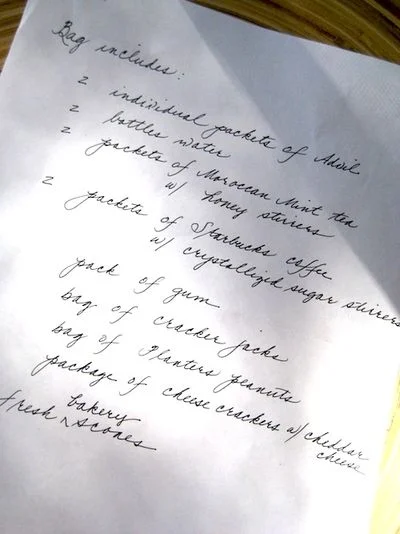 Bag includes:
2 individual packets of Advil
2 bottles water
2 packets of Moroccan Mint tea
w/ honey stirrers
2 packets of Starbucks coffee
w/ crystallized sugar stirrers
pack of gum
bag of cracker jacks
bag of Planters peanuts
package of cheese crackers w/ cheddar
cheese
bakery
fresh ^ scones